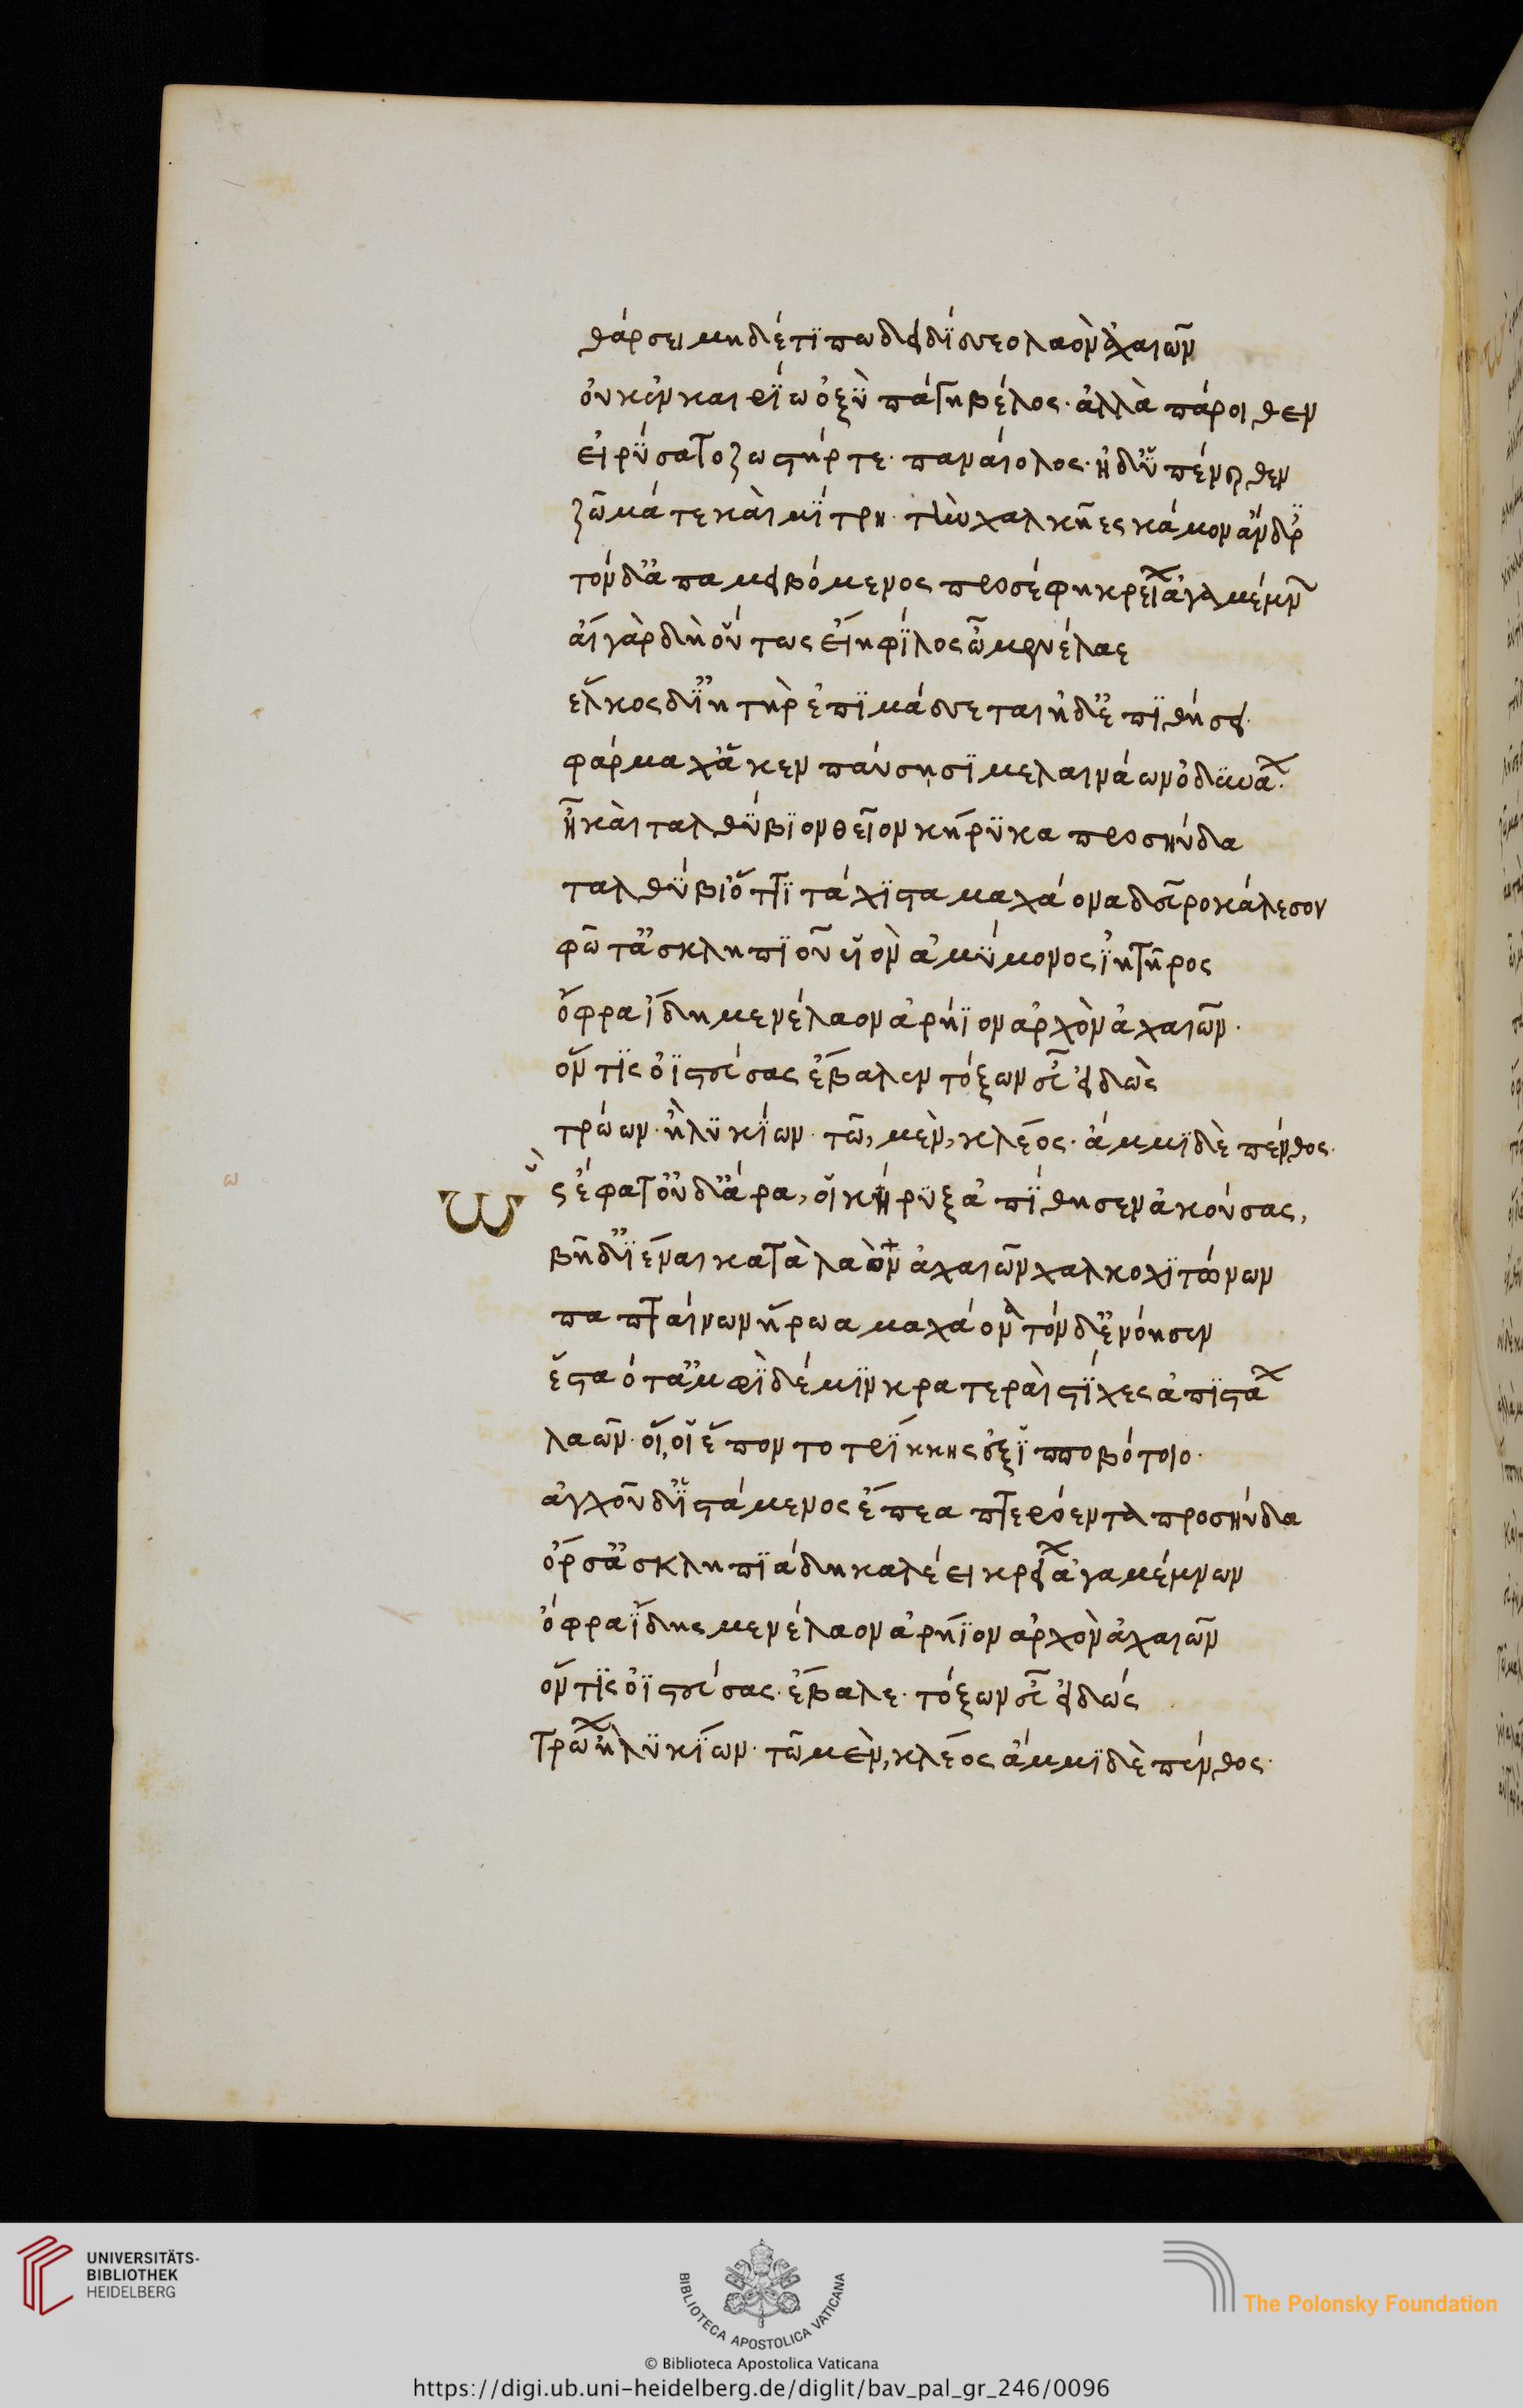 θάρσει μηδέτί πω δειδίσσεο λαὸν ἀχαιῶν
οὐκ ἐν καιρίω ὀξὺ πάγη βέλος· ἀλλὰ πάροιθεν
εἰρύσατο ζωστήρ τε· παναίολος· ἠδ' ὑπένερθεν
ζῶμά τε καὶ μίτρη· τὴν χαλκῆες κάμον ἄνδρ
τὸν δ' ἀπαμειβόμενος προσέφη κρείων ἀγαμέμνων
αἲ γὰρ δὴ οὕτως εἴη φίλος ὦ μενέλαε
ἕλκος δ' ἰητὴρ ἐπιμάσσεται ἠδ' ἐπιθήσει·
φάρμαχ' ἅ κεν παύσησι μελαινάων ὀδυνάων·
ἦ καὶ ταλθύβιον θεῖον κήρυκα προσηύδα
ταλθύβι' ὅττι τάχιστα μαχάονα δεῦρο κάλεσον
φῶτ' ἀσκληπιοῦ υἱὸν ἀμύμονος ἰητῆρος
ὄφρα ἴδη μενέλαον ἀρήϊον ἀρχὸν ἀχαιῶν·
ὅν τις ὀϊστεύσας ἔβαλεν τόξων εὖ εἰδὼς
τρώων· ἢ λυκίων· τῶ, μὲν, κλέος· ἄμμι δὲ πένθος·
ὣς ἔφατ' οὐδ' ἄρα, οἱ κήρυξ ἀπίθησεν ἀκούσας,
βῆ δ' ἰέναι κατὰ λαὸν ἀχαιῶν χαλκοχιτώνων
παπταίνων ἥρωα μαχάονα τὸν δ' ἐνόησεν
ἑσταότ' ἀμφὶ δέ μιν κρατεραὶ στίχες ἀσπιστάων
λαῶν· οἵ, οἱ ἕποντο τρίκκης ἐξ ἱπποβότοιο·
ἀγχοῦ δ' ἱστάμενος ἔπεα πτερόεντα προσηύδα
ὄρσ' ἀσκληπιάδη καλέει κρείων ἀγαμέμνων
ὄφρα ἴδης μενέλαον ἀρήϊον ἀρχὸν ἀχαιῶν
ὅν τις ὀϊστεύσας· ἔβαλε· τόξων εὖ εἰδώς
Τρώων ἢ λυκίων· τῶ μὲν, κλέος ἄμμι δὲ πένθος·
ω
UNIVERSITÄTS-
BIBLIOTHEK
HEIDELBERG
BIBLIOTECA APOSTOLICA VATICANA
The Polonsky Foundation
© Biblioteca Apostolica Vaticana
https://digi.ub.uni-heidelberg.de/diglit/bav_pal_gr_246/0096